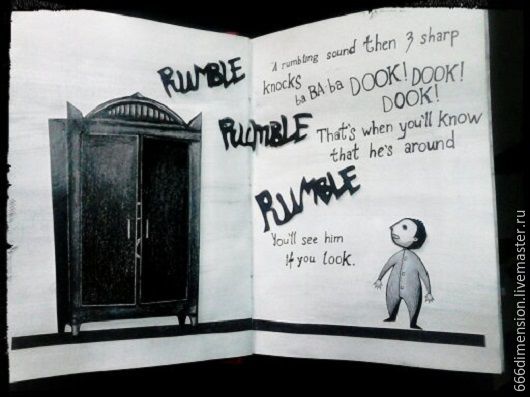 RUMBLE
RUMBLE
RUMBLE
A rumbling sound then 3 sharp
knocks
ba BA-ba DOOK! DOOK!
DOOK!
That's when you'll know
that he's around
You'll see him
if you look.
666dimension.livemaster.ru